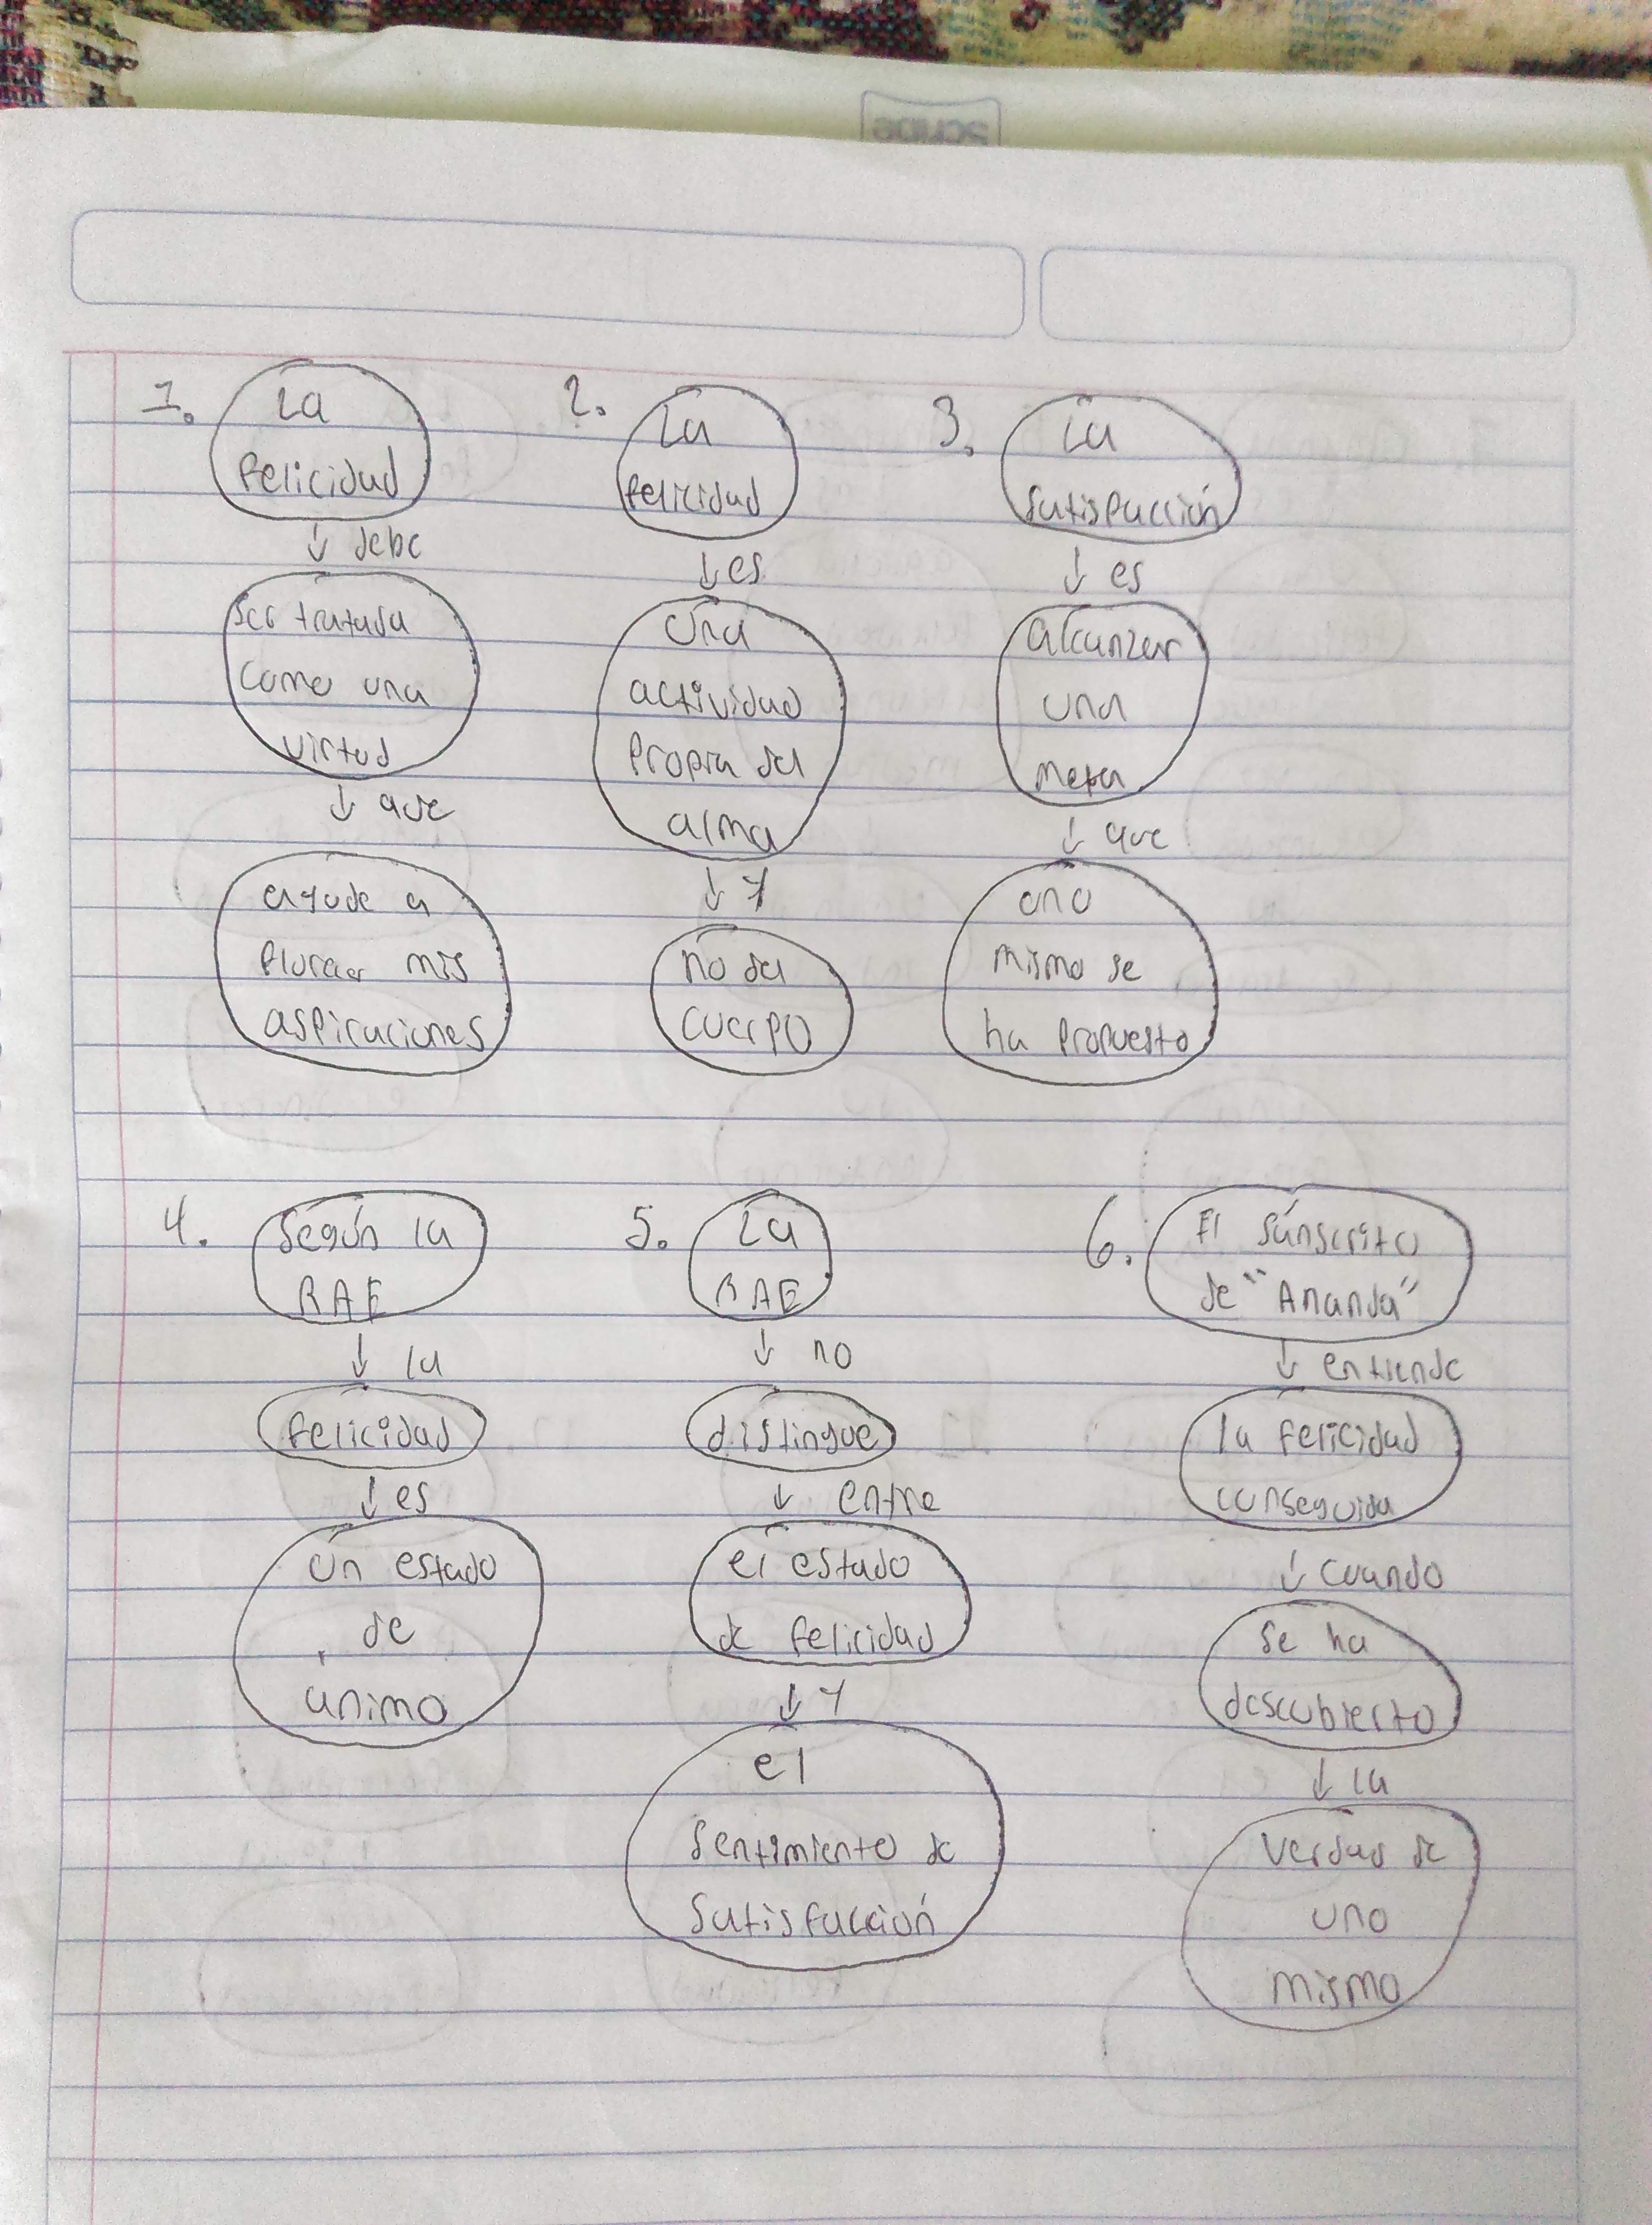 1.
La
felicidad
↓ debe
ser tratada
como una
virtud
↓ que
ayude a
florecer mis
aspiraciones
2.
La
felicidad
↓ es
una
actividad
propia del
alma
↓ y
no del
cuerpo
3.
La
satisfacción
↓ es
alcanzar
una
meta
↓ que
uno
mismo se
ha propuesto
4.
Según la
RAE
↓ la
felicidad
↓ es
un estado
de
animo
5.
La
RAE
↓ no
distingue
↓ entre
el estado
de felicidad
↓ y
el
sentimiento de
satisfacción
6.
El sánscrito
de "Ananda"
↓ entiende
la felicidad
conseguida
↓ cuando
se ha
descubierto
↓ la
verdad de
uno
mismo